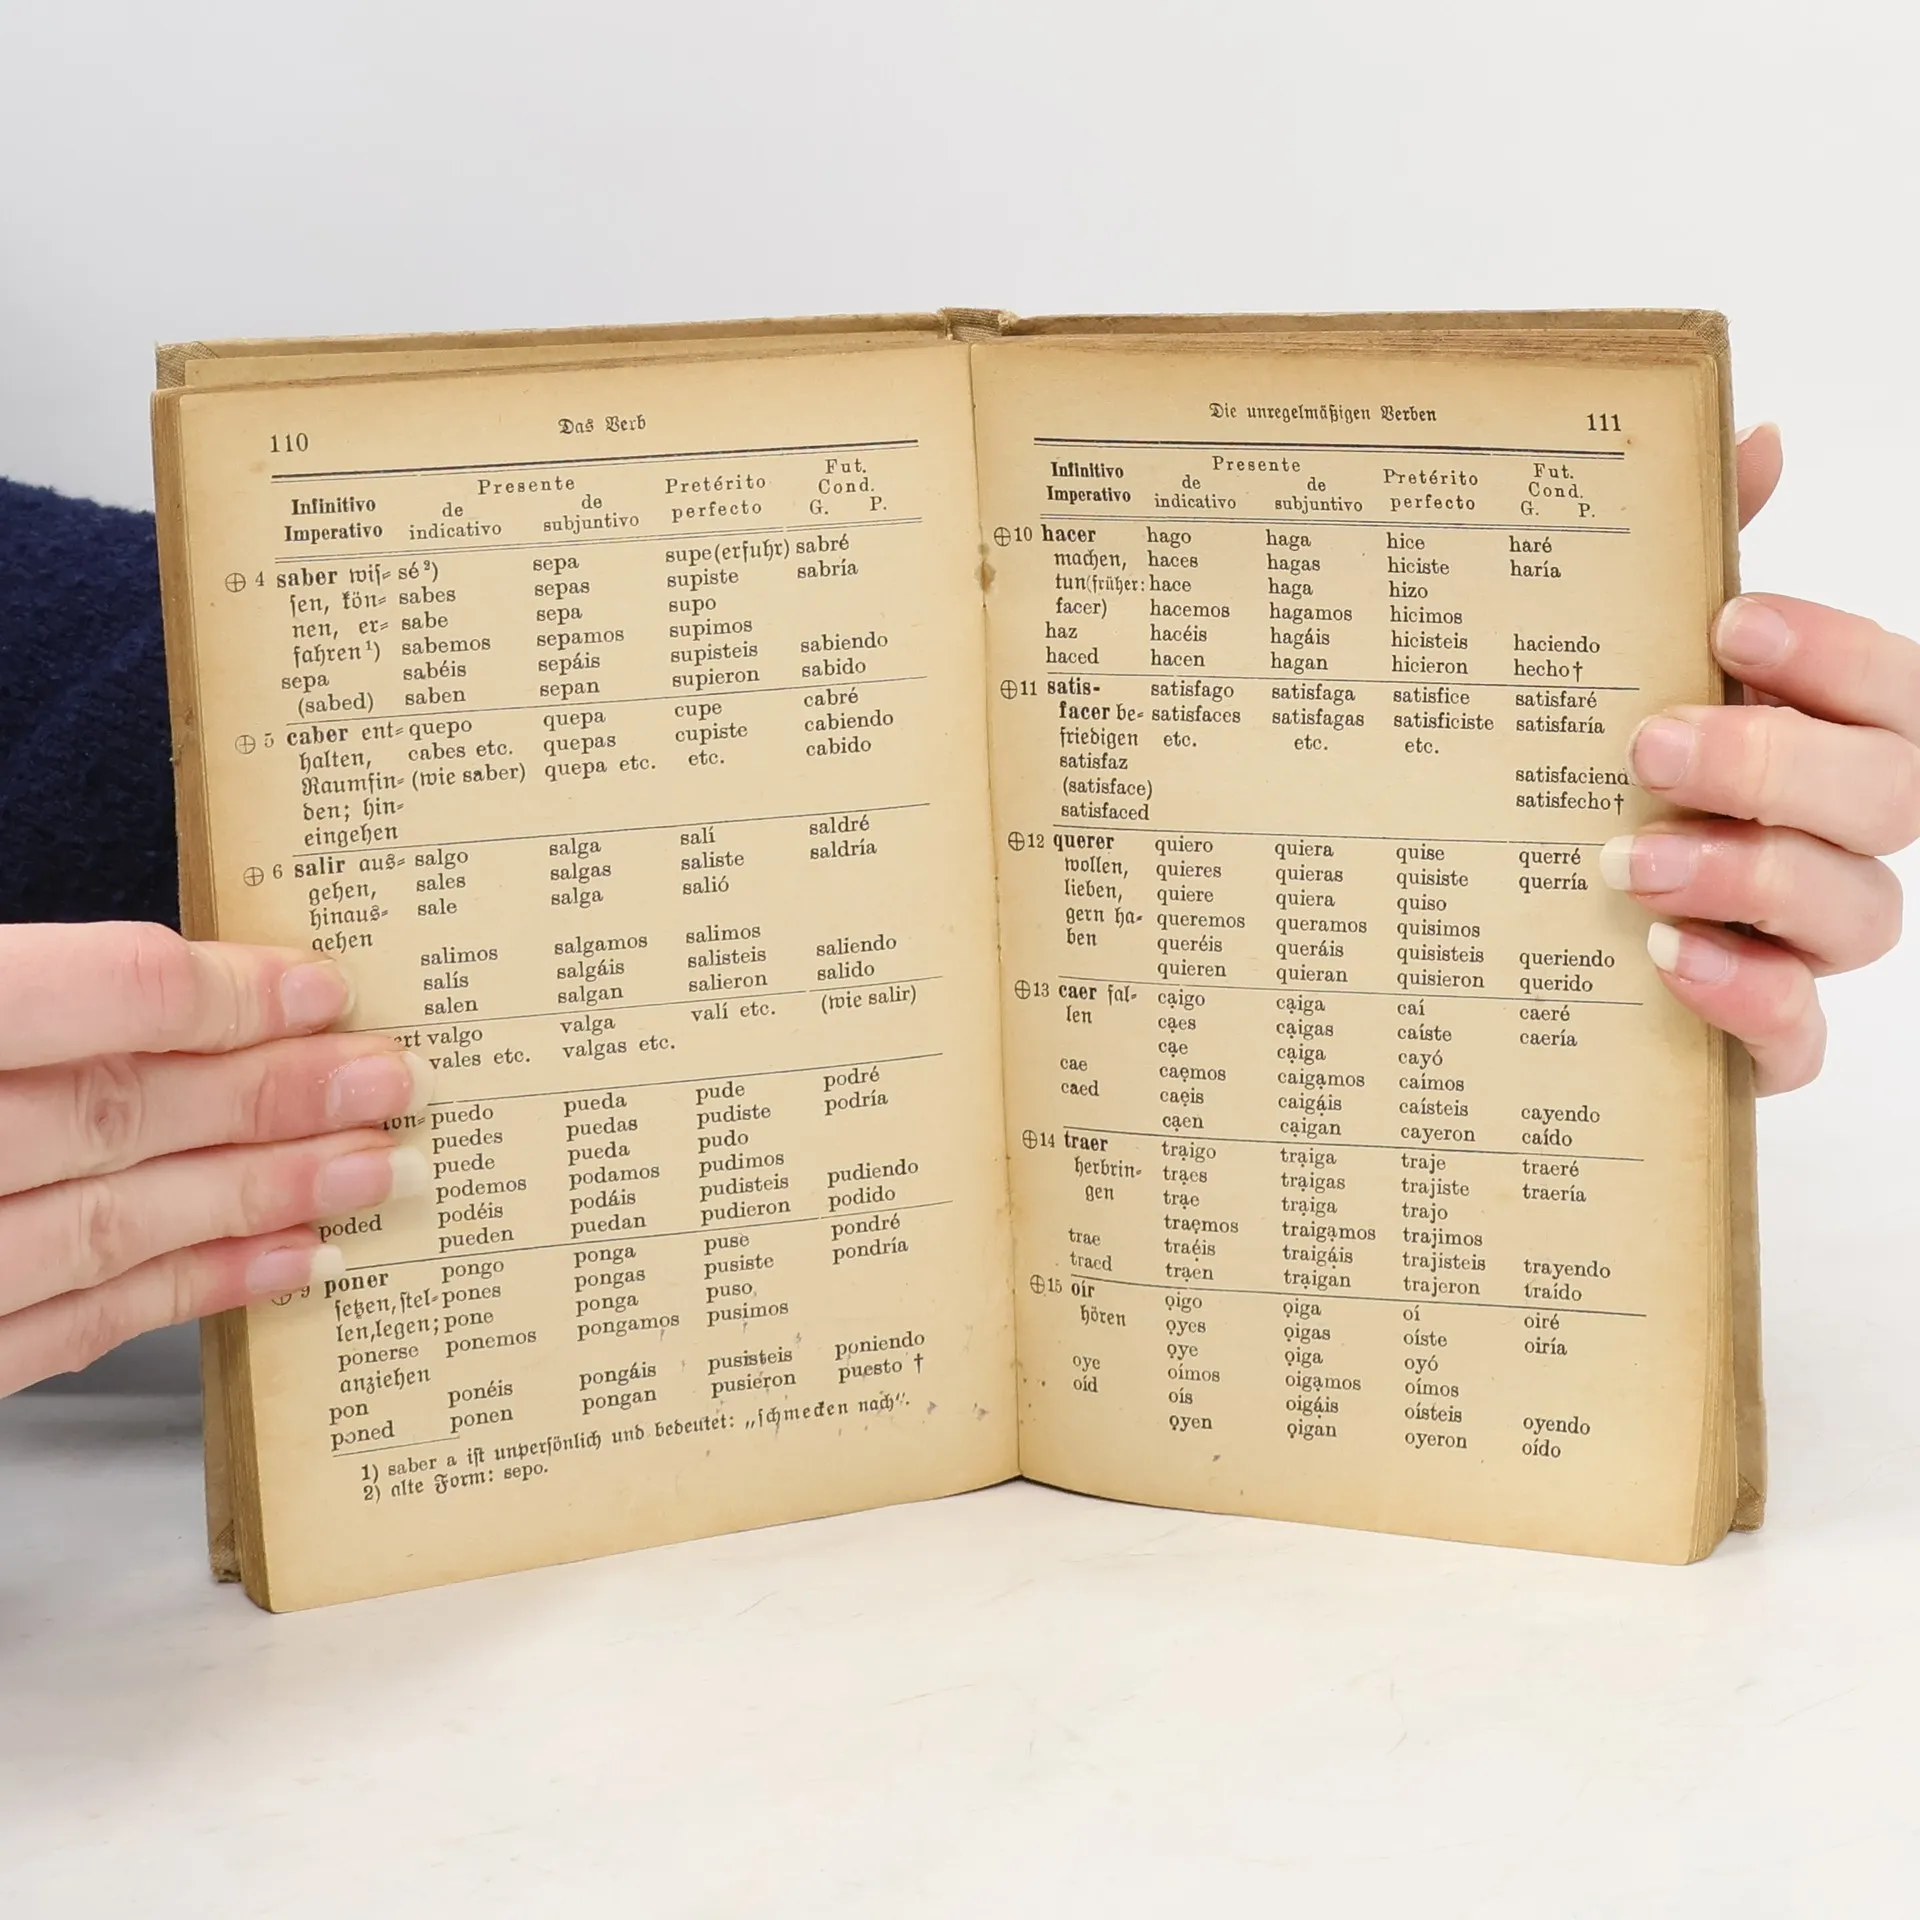 110
Das Verb
Infinitivo Imperativo | Presente de indicativo | Presente de subjuntivo | Pretérito perfecto | Fut. Cond. G. P.
⊕ 4 saber wiſ= sé²) sepa supe (erfuhr) sabré
ſen, kön= sabes sepas supiste sabría
nen, er= sabe sepa supo
fahren¹) sabemos sepamos supimos
sepa sabéis sepáis supisteis sabiendo
(sabed) saben sepan supieron sabido
⊕ 5 caber ent= quepo quepa cupe cabré
halten, cabes etc. quepas cupiste cabiendo
Raumfin= (wie saber) quepa etc. etc. cabido
den; hin=
eingehen
⊕ 6 salir aus= salgo salga salí saldré
gehen, sales salgas saliste saldría
hinaus= sale salga salió
gehen
salimos salgamos salimos
salís salgáis salisteis saliendo
salen salgan salieron salido
valgo valga valí etc. (wie salir)
vales etc. valgas etc.
puedo pueda pude podré
puedes puedas pudiste podría
puede pueda pudo
podemos podamos pudimos
poded podéis podáis pudisteis pudiendo
pueden puedan pudieron podido
9 poner pongo ponga puse pondré
ſetzen, ſtel= pones pongas pusiste pondría
len, legen; pone ponga puso
ponerse ponemos pongamos pusimos
anziehen
pon ponéis pongáis pusisteis poniendo
poned ponen pongan pusieron puesto †
1) saber a iſt unperſönlich und bedeutet: „ſchmecken nach“.
2) alte Form: sepo.
Die unregelmäßigen Verben
111
Infinitivo Imperativo | Presente de indicativo | Presente de subjuntivo | Pretérito perfecto | Fut. Cond. G. P.
⊕10 hacer hago haga hice haré
machen, haces hagas hiciste haría
tun (früher: hace haga hizo
facer) hacemos hagamos hicimos
haz hacéis hagáis hicisteis haciendo
haced hacen hagan hicieron hecho †
⊕11 satis- satisfago satisfaga satisfice satisfaré
facer be= satisfaces satisfagas satisficiste satisfaría
friedigen etc. etc. etc.
satisfaz
(satisface) satisfaciend
satisfaced satisfecho †
⊕12 querer quiero quiera quise querré
wollen, quieres quieras quisiste querría
lieben, quiere quiera quiso
gern ha= queremos queramos quisimos
ben queréis queráis quisisteis queriendo
quieren quieran quisieron querido
⊕13 caer fal= cạigo cạiga caí caeré
len cạes cạigas caíste caería
cạe cạiga cayó
cae caẹmos caigạmos caímos
caed caẹis caigạ́is caísteis cayendo
cạen cạigan cayeron caído
⊕14 traer trạigo trạiga traje traeré
herbrin= trạes trạigas trajiste traería
gen trạe trạiga trajo
traẹmos traigạmos trajimos
trae traẹ́is traigạ́is trajisteis trayendo
traed trạen trạigan trajeron traído
⊕15 oír ọigo ọiga oí oiré
hören ọyes ọigas oíste oiría
ọye ọiga oyó
oye oímos oigạmos oímos
oíd oís oigạ́is oísteis oyendo
ọyen ọigan oyeron oído